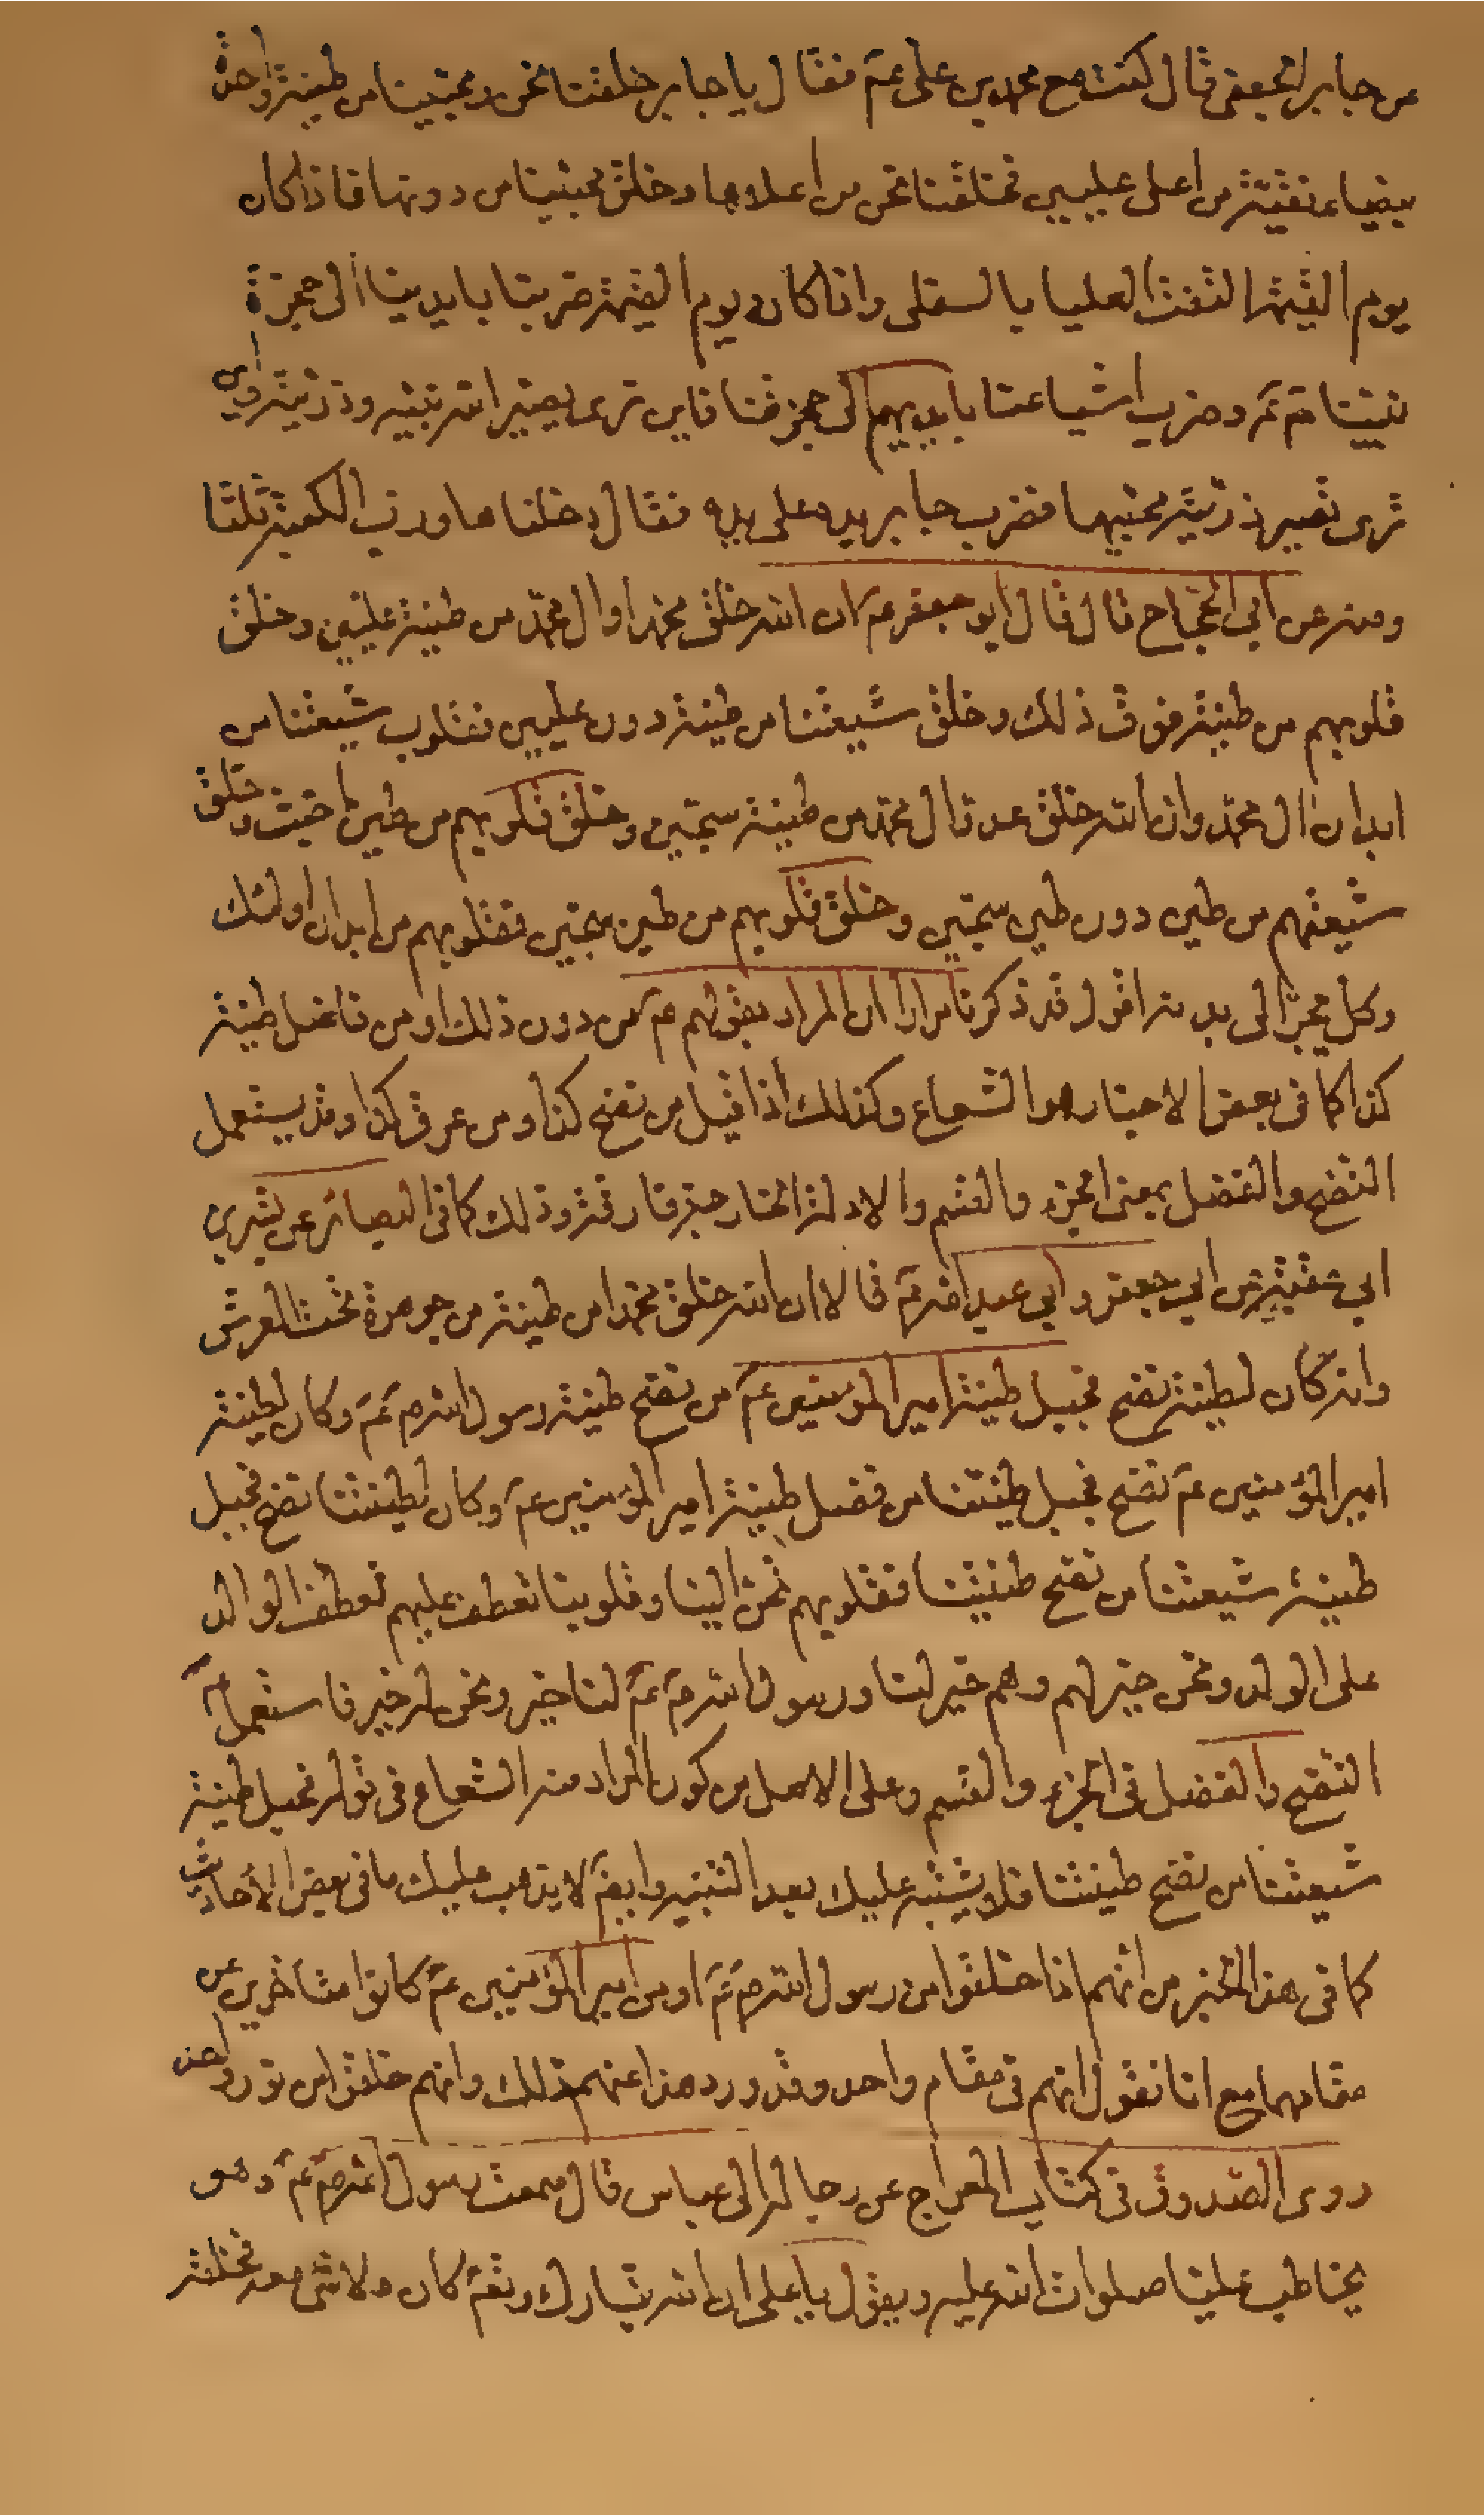 عن جابر الجعفى قال كنت مع محمد بن على عم فقال يا جابر خلقنا نحن و محبينا من طينة واحدة
بيضاء نقية من اعلى عليين فخلقنا نحن من اعلاها و خلق محبينا من دونها فاذا كان
يوم القيمة التفت العليا بالسفلى و اذا كان يوم القيمة ضربنا بايدينا الى حجزة
نبينا ص ع و ضرب اشياعنا بايديهم الى حجزتنا فاين ترى يصير الله نبيه و ذريته و اين
ترى يصير ذريته محبيها فضرب جابر يده على يده فقال دخلناها و رب الكعبة ثلثا
و منه عن ابى الحجاج قال قال ابو جعفر عم ان الله خلق محمدا و ال محمد من طينة عليين و خلق
قلوبهم من طينة فوق ذلك و خلق شيعتنا من طينة دون عليين فقلوب شيعتنا من
ابدان ال محمد و ان الله خلق عدو ال محمد من طينة سجين و خلق قلوبهم من طين اخبث و خلق
شيعتهم من طين دون طين سجين و خلق قلوبهم من طين سجين فقلوبهم من ابدان اولئك
و كل يحن الى بدنه اقول قد ذكرنا مرارا ان المراد بقولهم عم من دون ذلك او من فاضل طينة
كذا كما فى بعض الاخبار هو الشعاع و كذلك اذا قيل من نضح كذا و من عرق كذا و قد يستعمل
النضح و الفضل بمعنى الجزء و القسم و الادلة الخارجية فارقة و ذلك كما فى البصائر عن بشر بن
ابى عقبة عن ابى جعفر و ابى عبد الله عم قالا ان الله خلق محمدا من طينة من جوهرة تحت العرش
و انه كان لطينته نضح فجبل طينة امير المؤمنين عم من نضح طينة رسول الله ص عم و كان لطينة
امير المؤمنين عم نضح فجبل طينتنا من فضل طينة امير المؤمنين عم و كان لطينتنا نضح فجبل
طينة شيعتنا من نضح طينتنا فقلوبهم تحن الينا و قلوبنا تعطف عليهم تعطف الوالد
على الولد و نحن خير لهم و هم خير لنا و رسول الله ص عم لنا خير و نحن له خير فاستعمل عم
النضح و الفضل فى الجزء و القسم و على الاصل من كون المراد منه الشعاع فى قوله فجبل طينة
شيعتنا من نضح طينتنا فلا يشتبه عليك بعد التنبيه و ايضا لا يذهب عليك ما فى بعض الأحاديث
كما فى هذا الخبر من انهم اذا خلقوا من رسول الله ص عم او من امير المؤمنين عم كانوا متأخرين عن
مقامهما مع انا نقول انهم فى مقام واحد و قد ورد هذا عنهم ذلك و انهم خلقوا من نور واحد
روى الصدوق فى كتاب المعراج عن رجاله الى عباس قال سمعت رسول الله ص عم و هو
يخاطب عليا صلوات الله عليه و يقول يا على ان الله تبارك و تعم كان و لا شئ معه فخلقنى